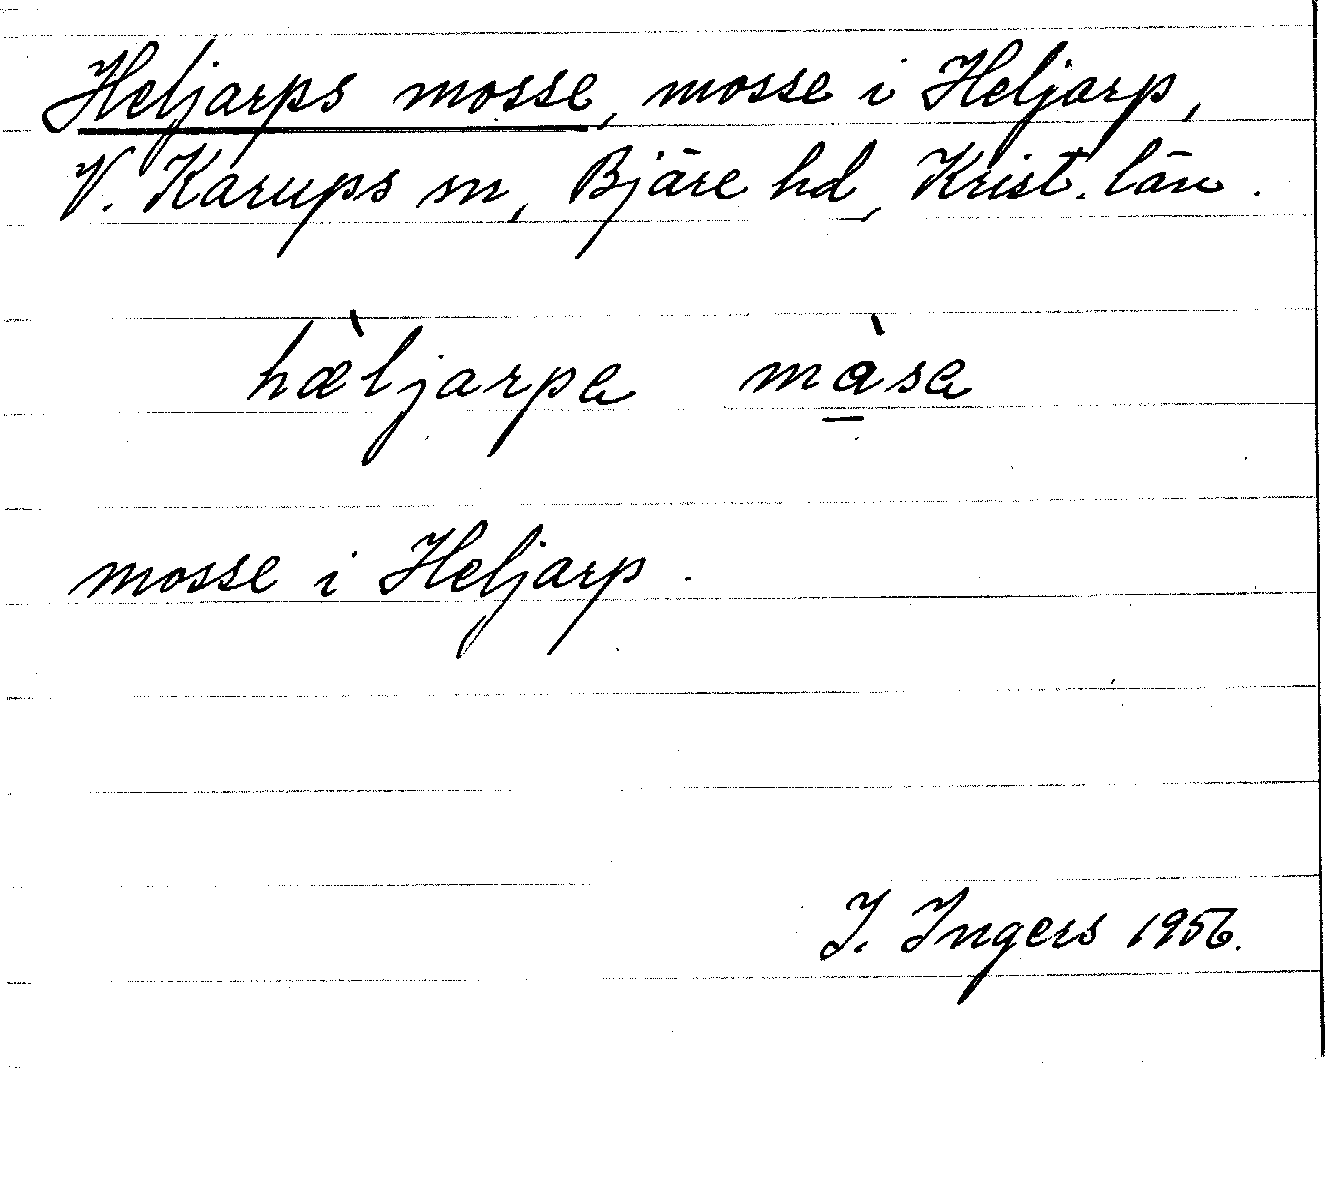 Heljarps mosse, mosse i Heljarp,
V. Karups sn, Bjäre hd, Krist. län.
hæ̀ljarpa mà̱sa
mosse i Heljarp.
I. Ingers 1956.